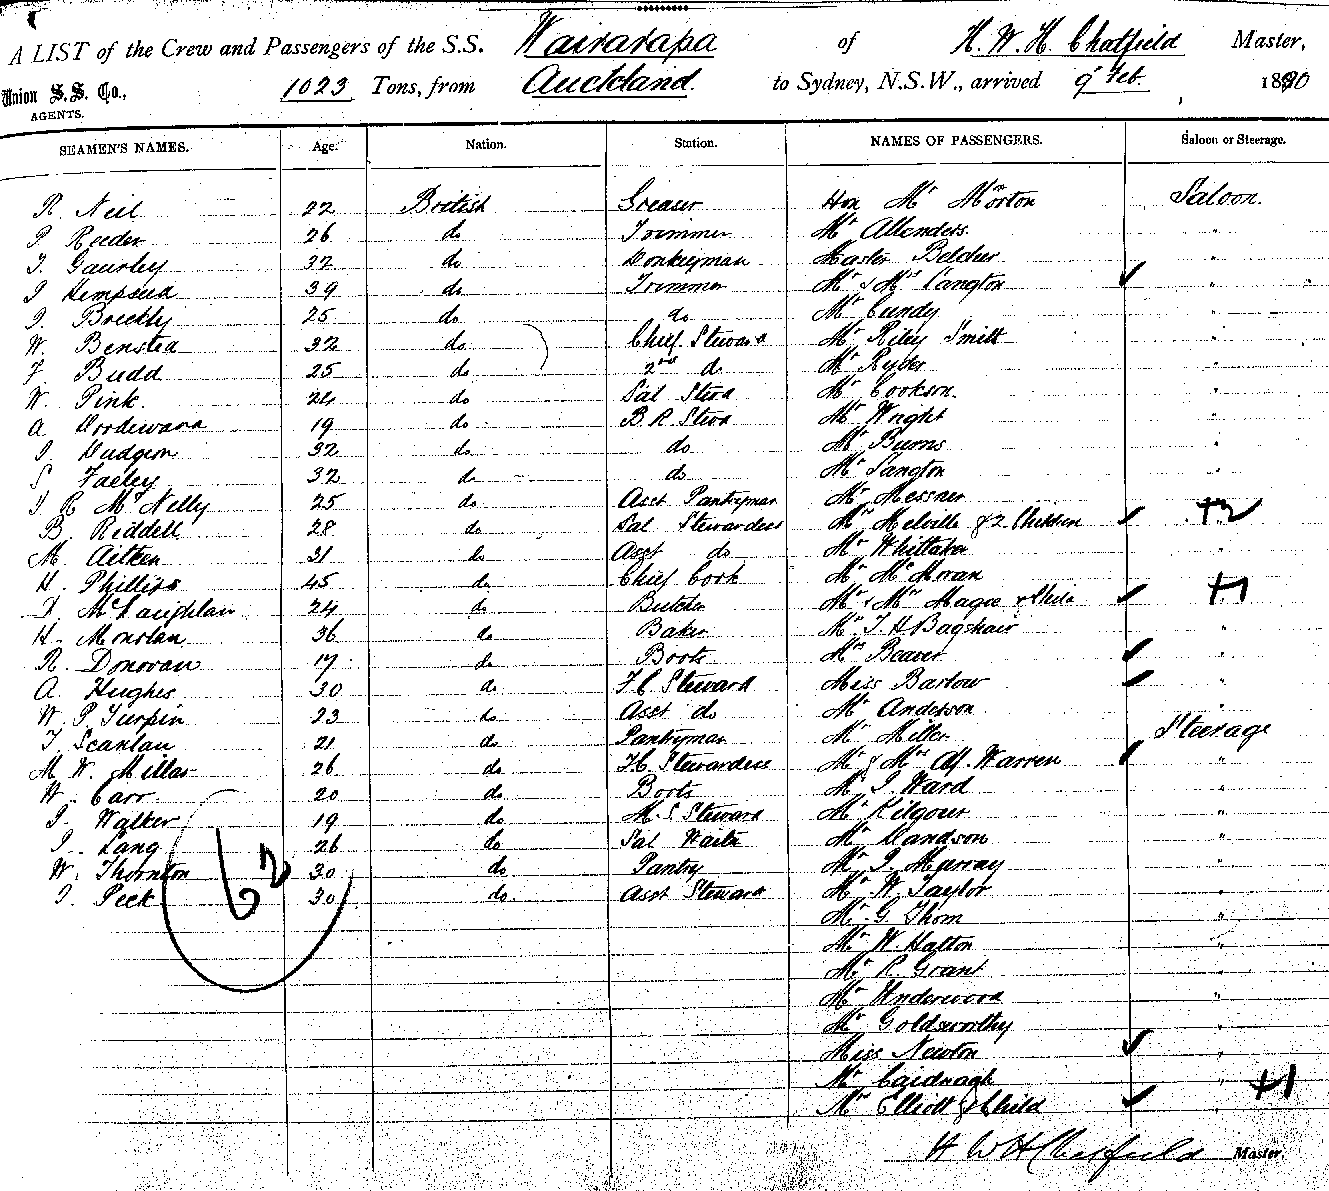 A LIST of the Crew and Passengers of the S.S. Wairarapa of H. W. H. Chatfield Master,
Union S.S. Co., AGENTS. 1023 Tons, from Auckland. to Sydney, N.S.W., arrived 9th Feb. 1890
SEAMEN'S NAMES. Age. Nation. Station. NAMES OF PASSENGERS. Saloon or Steerage.
R. Neil 22 British Greaser Hon Mr Morton Saloon.
P Reeder 26 do Trimmer Mr Allenders "
T. Gourley 32 do Donkeyman Master Belcher "
J Hempseed 39 do Trimmer Mr & Mrs Langton "
J. Brickly 25 do do Mr Cundy "
W. Bensted 32 do Chief Steward Mr Riley Smith "
F. Budd 25 do 2nd do Mr Ryder "
W. Pink. 24 do Sal Stwd Mr Cookson. "
A Woodward 19 do B. R. Stwd Mr Wright "
J. Hudgson 32 do do Mr Burns "
S. Failey 32 do do Mr Langton "
J R McNelly 25 do Asst Pantryman Mr Messner
B. Riddell 28 do Sal Stewardess Mrs Melville & 2 Children +2
M. Aitken 31 do Asst do Mr Whittaker "
H. Phillips 45 do Chief Cook Mr McMoran
D. McLaughlan 24 do Butcher Mr & Mrs Magee & Child +1
H. Monslan 36 do Baker Mr T H Bagshair "
R. Donovan 17 do Boots Mrs Beaver "
A. Hughes 30 do F.C Steward Miss Barlow "
W. P. Turpin 23 do Asst do Mr Anderson "
T. Scanlan 21 do Pantryman Mr Miller Steerage
M. W. Millar 26 do F.C Stewardess Mr & Mrs Alf. Warren "
W. Carr 20 do Boots Mr J. Ward "
J. Walker 19 do M. S Steward Mr Kilgour "
J. Lang 26 do Sal Waiter Mr Davidson "
W. Thornton 30 do Pantry Mr J. Murray "
J. Peek 30 do Asst Steward Mr W. Taylor "
62
Mr G. Thom "
Mr W. Hatton "
Mr R. Grant
Mr Underwood "
Mr Goldsworthy "
Miss Newton "
Mr Cairdnagh "
Mr Elliott & Child " +1
H W H Chatfield Master.